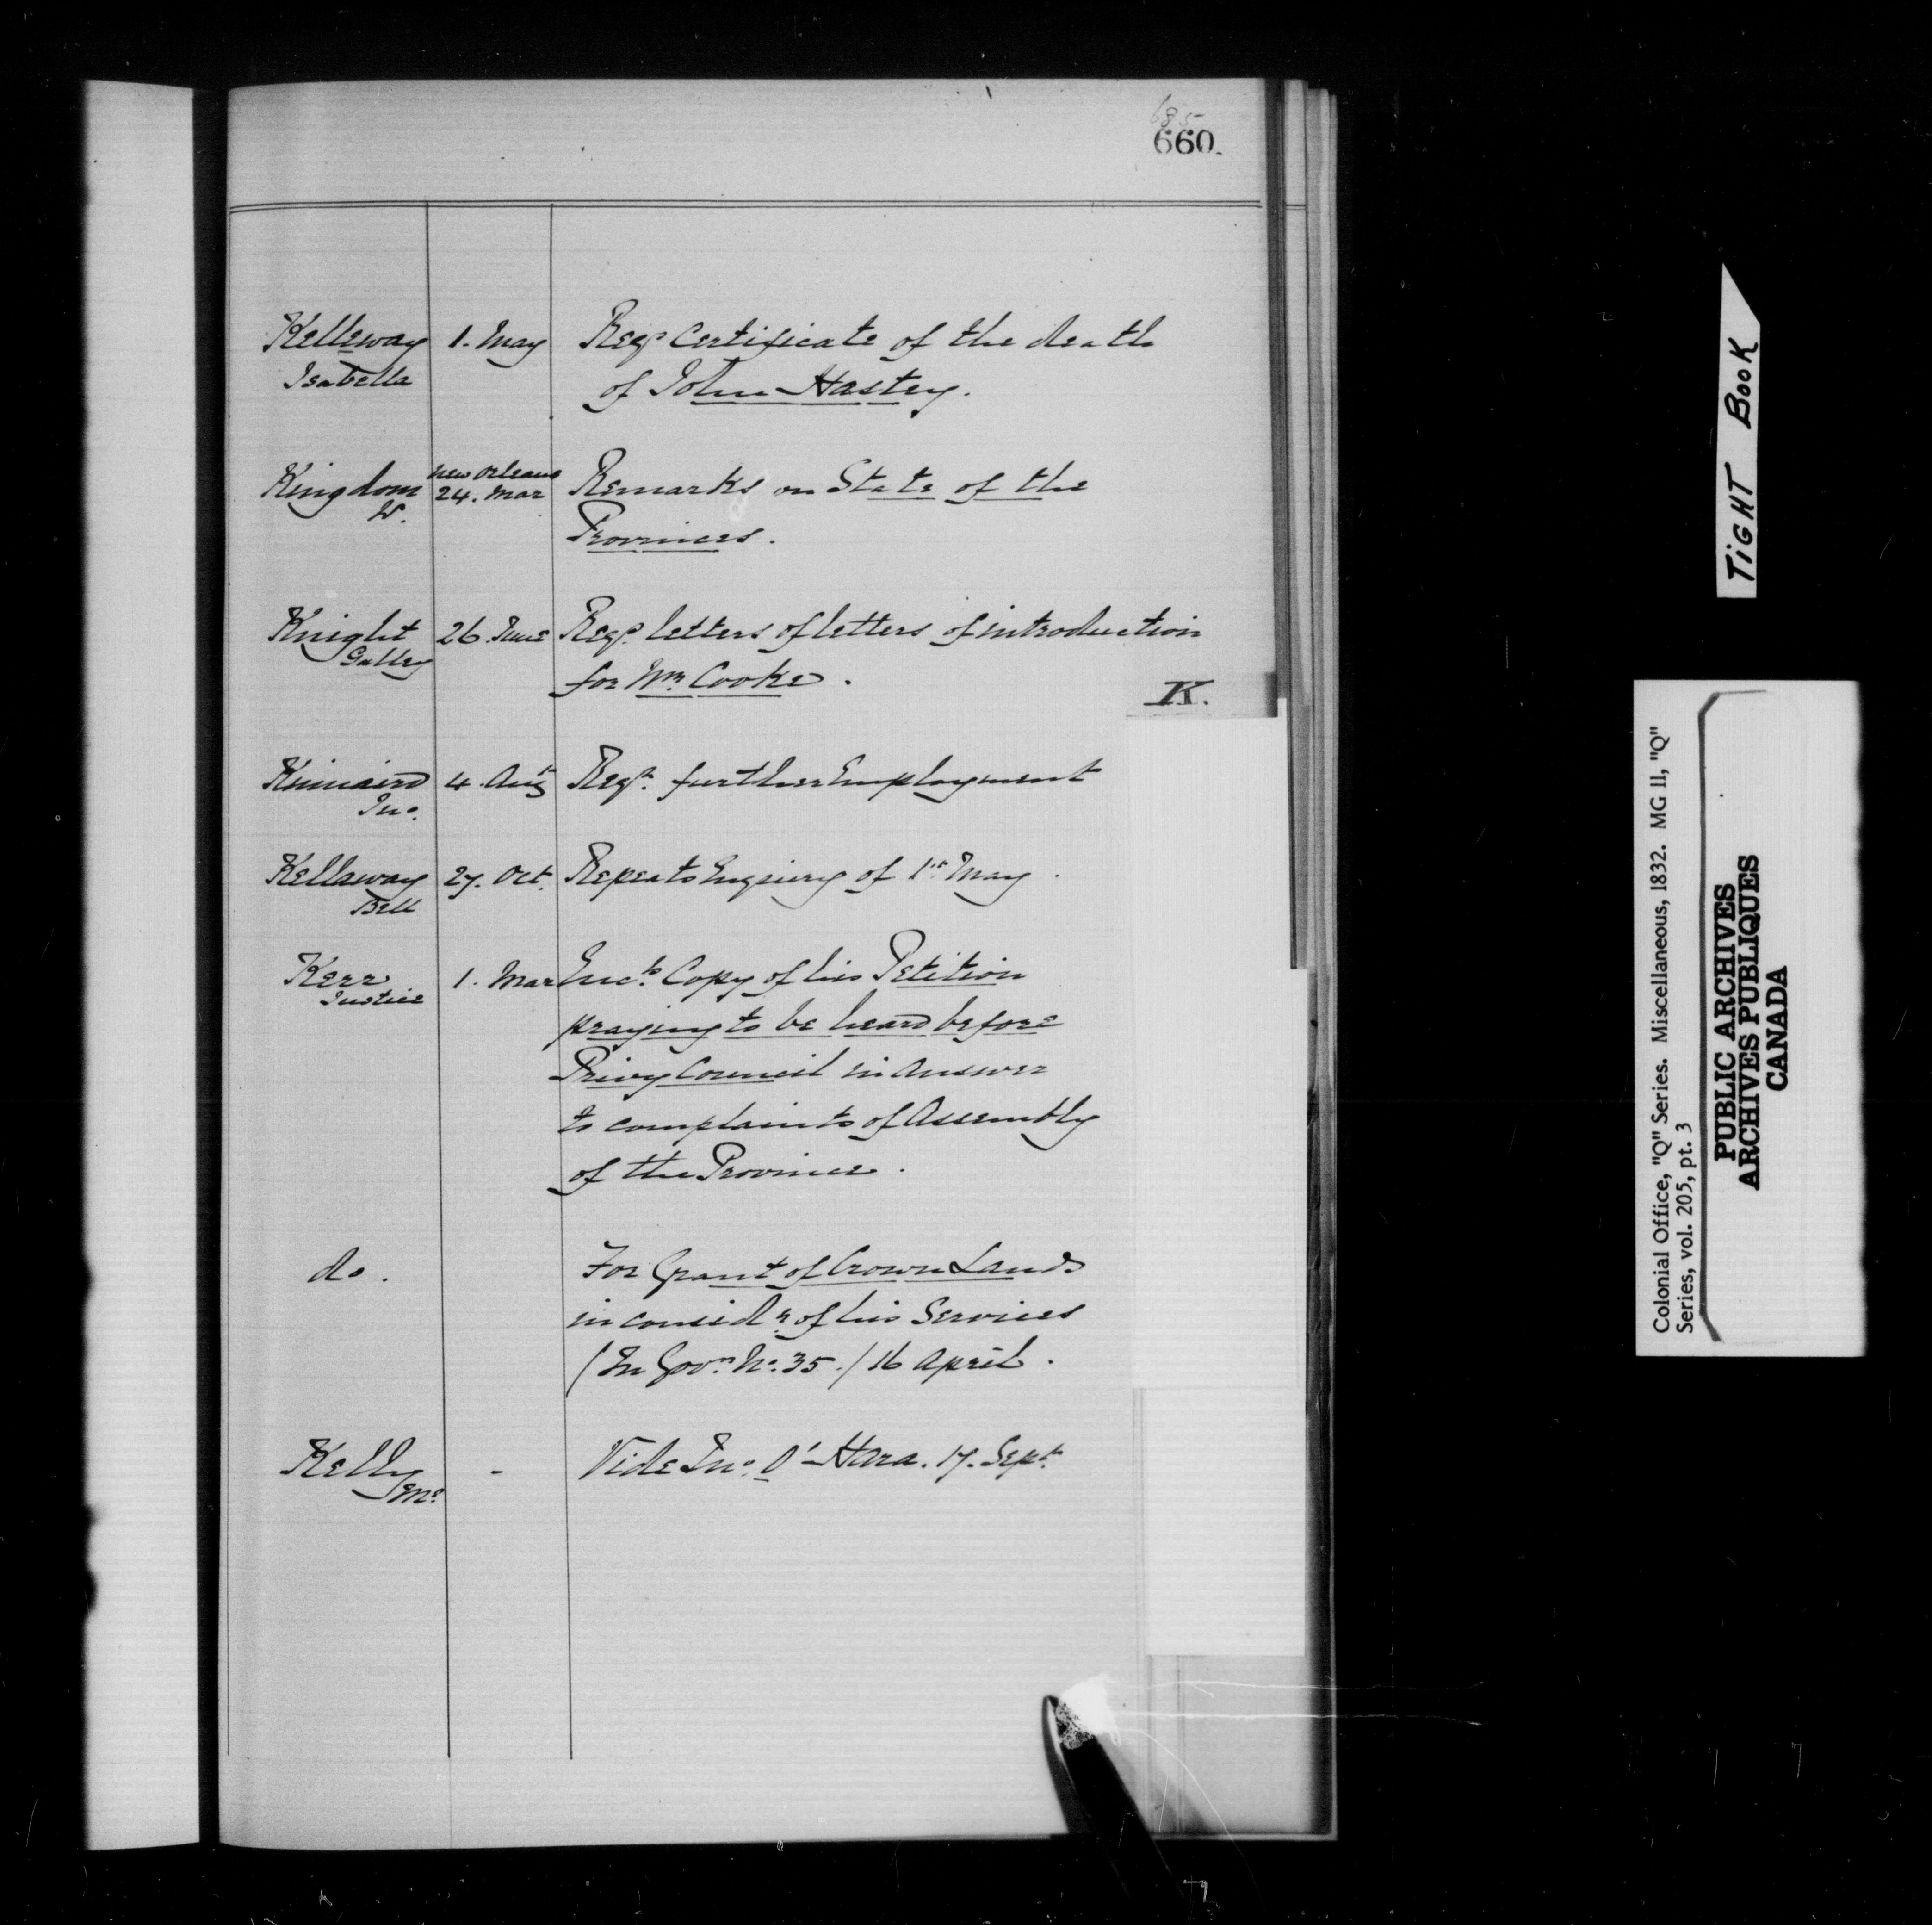 685
660.
Kelleway 1. May Reqg Certificate of the death
Isabella of John Hastey.
New Orleans
Kingdom 24. Mar Remarks on State of the
W. Provinces.
Knight 26. June Reqg. letters of letters of introduction
Galley for Wm. Cooke.
K.
Kinnaird 4. Augt Reqts. further Employment
Jno.
Kellaway 27. Oct. Repeats Enquiry of 1st May.
Bell
Kerr 1. Mar Encs. Copy of his Petition
Justice praying to be heard before
Privy Council in answer
to complaints of Assembly
of the Province.
do. For Grant of Crown Lands
in considn of his Services
(In Govrs No. 35.) 16 April.
Kelly - Vide Jno. O'Hara. 17. Sept.
TIGHT BOOK
Colonial Office, "Q" Series. Miscellaneous, 1832. MG 11, "Q"
Series, vol. 205, pt. 3
PUBLIC ARCHIVES
ARCHIVES PUBLIQUES
CANADA